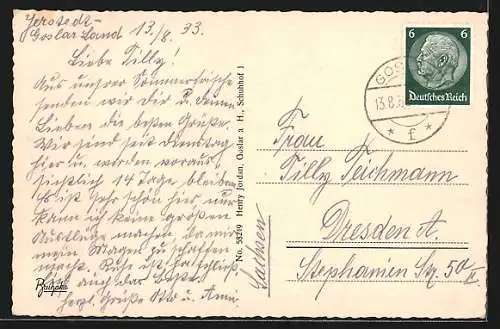 Jerstedt-
Goslar Land 13./8. 33.
Liebe Tilly!
Aus unsrer Sommerfrische
senden wir Dir u. deinen
Lieben die besten Grüße.
Wir sind seit Dienstag
hier u. werden voraus-
sichtlich 14 Tage bleiben.
Es ist sehr schön hier nur
kann ich keine Großen
Ausflüge machen da mir
mein Magen zu schaffen
macht. Ruhe ist
auch das Beste.
Herzl. Grüße Otto u. Anni.
No. 58299 Henry Jordan, Goslar a H., Schuhhof 1
6 6
Deutsches Reich
GOS
13.8.
* f *
Frau
Tilly Teichmann
Dresden A.
Stephanien Str. 50 II
Sachsen